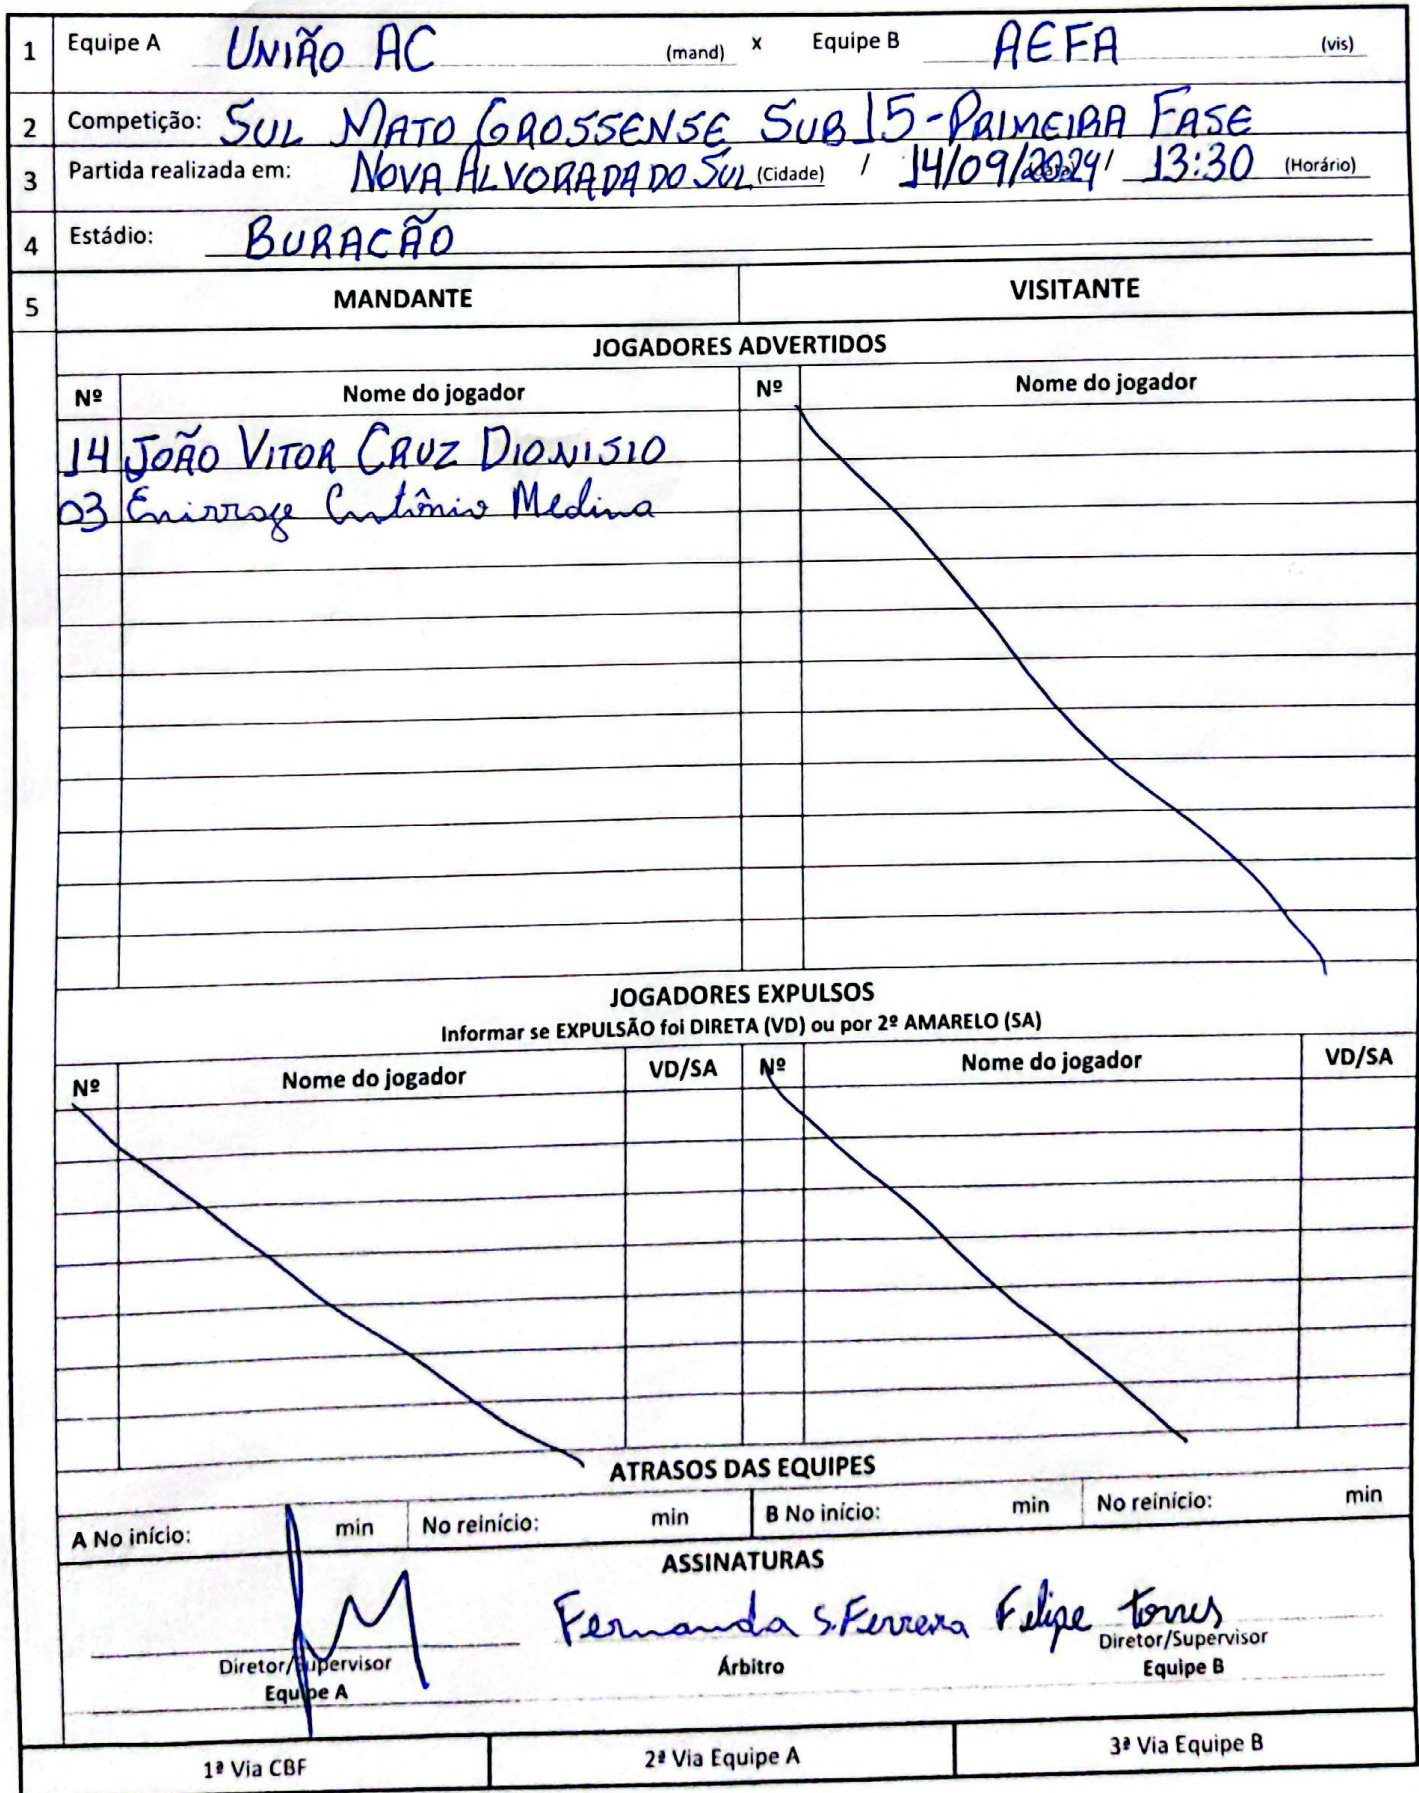 1 Equipe A UNIÃO AC (mand) x Equipe B AEFA (vis)
2 Competição: SUL MATO GROSSENSE SUB 15 - PRIMEIRA FASE
3 Partida realizada em: NOVA ALVORADA DO SUL (Cidade) / 14/09/2024 / 13:30 (Horário)
4 Estádio: BURACÃO
5 MANDANTE VISITANTE
JOGADORES ADVERTIDOS
Nº Nome do jogador Nº Nome do jogador
14 JOÃO VITOR CRUZ DIONISIO
03 Antônio Medina
JOGADORES EXPULSOS
Informar se EXPULSÃO foi DIRETA (VD) ou por 2º AMARELO (SA)
Nº Nome do jogador VD/SA Nº Nome do jogador VD/SA
ATRASOS DAS EQUIPES
A No início: min No reinício: min B No início: min No reinício: min
ASSINATURAS
Fernanda S. Ferreira Felipe Torres
Diretor/Supervisor Árbitro Diretor/Supervisor
Equipe A Equipe B
1ª Via CBF 2ª Via Equipe A 3ª Via Equipe B